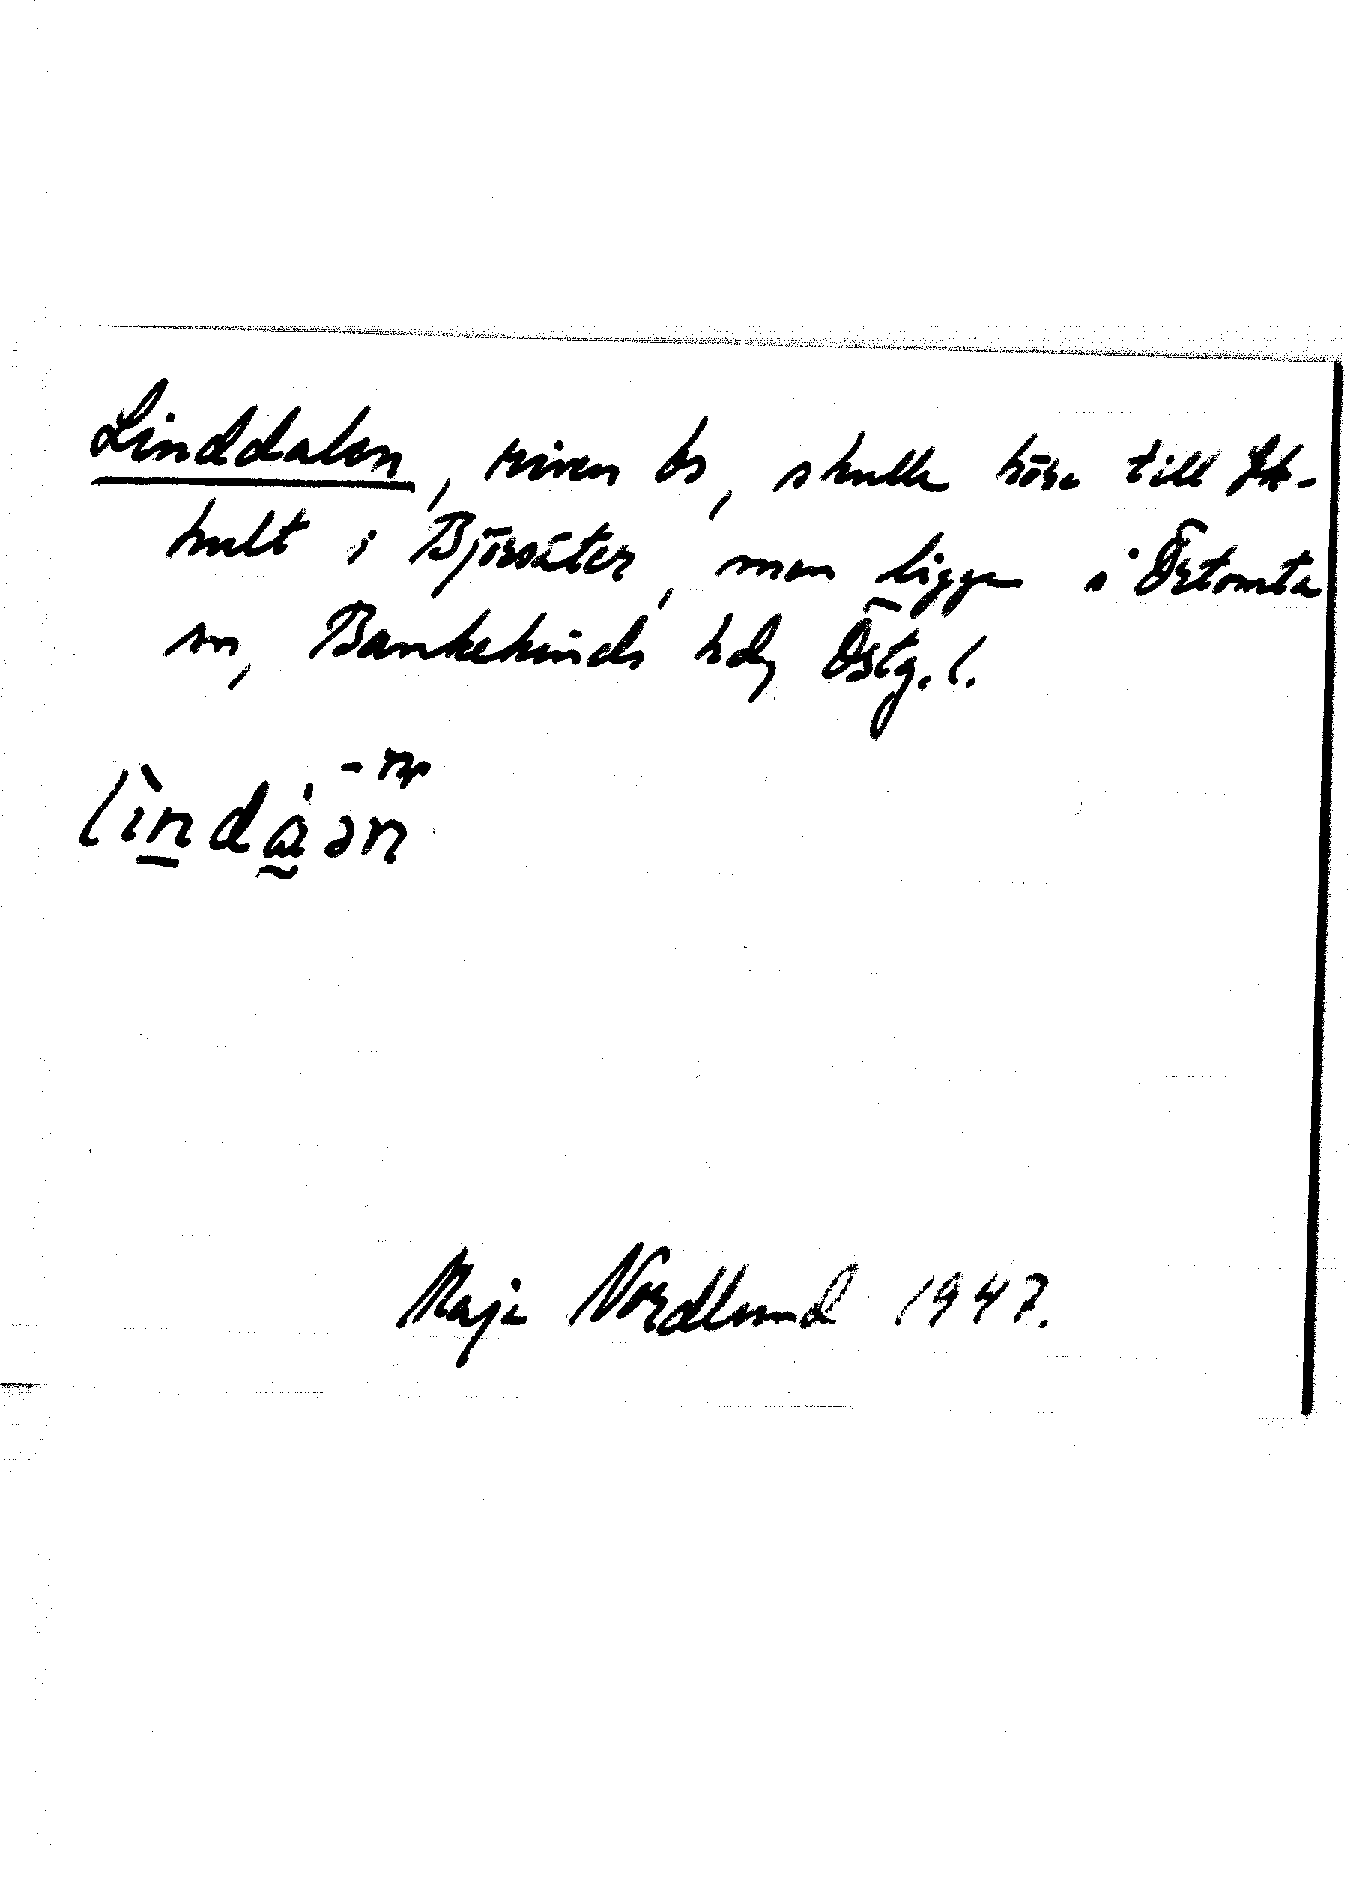 Linddalen, riven bs, skulle höra till
hult i Björsäter, men ligger i Örtomta
sn, Bankekinds hd, Östg. l.
Maja Nordlund 1947.